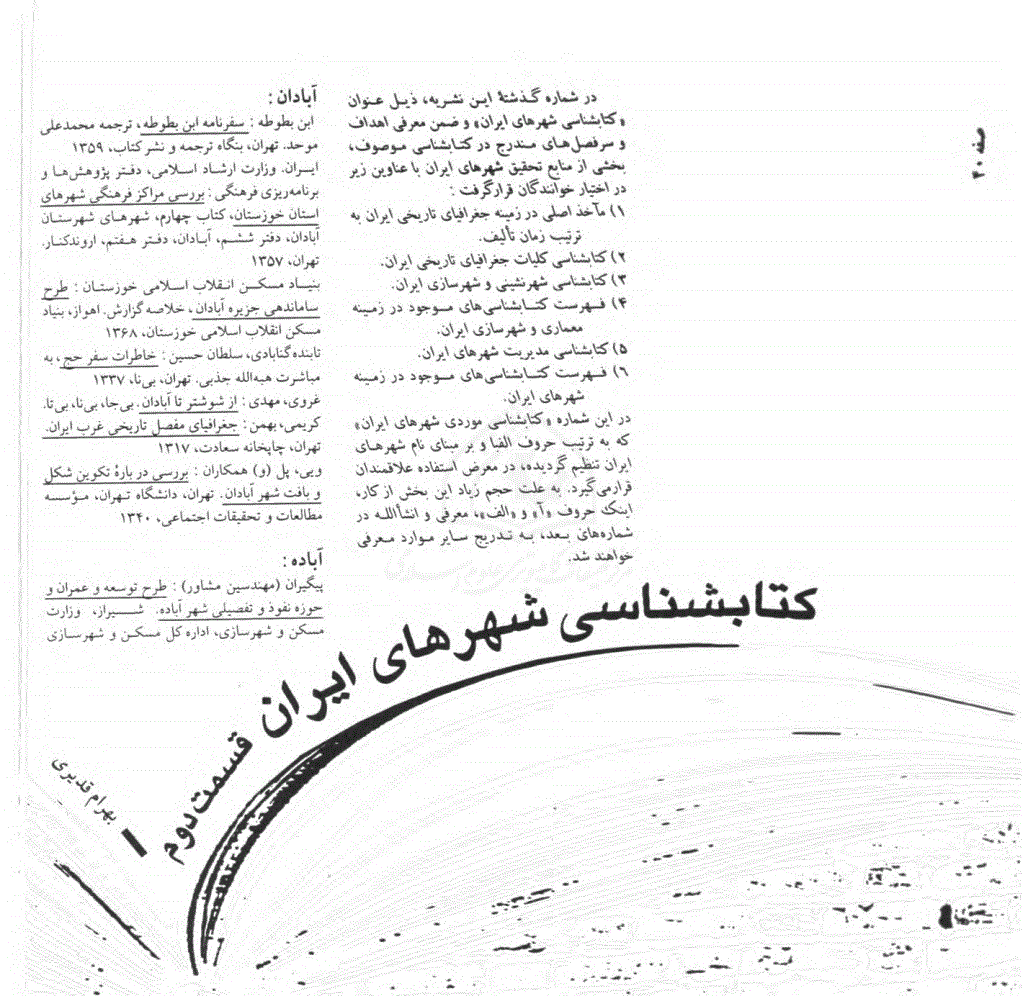 صفه ۴۰
در شماره گذشتهٔ ایـن نشـریه، ذیـل عـنوان
«کتابشناسی شهرهای ایران» و ضمن معرفی اهداف
و سرفصل‌های مـندرج در کـتابشناسی مـوصوف،
بخشی از منابع تحقیق شهرهای ایران با عناوین زیر
در اختیار خوانندگان قرارگرفت :
۱) مآخذ اصلی در زمینه جغرافیای تاریخی ایران به
ترتیب زمان تألیف.
۲) کتابشناسی کلیات جغرافیای تاریخی ایران.
۳) کتابشناسی شهرنشینی و شهرسازی ایران.
۴) فـهرست کـتابشناسی‌های مـوجود در زمـینه
معماری و شهرسازی ایران.
۵) کتابشناسی مدیریت شهرهای ایران.
۶) فـهرست کـتابشناسی‌های مـوجود در زمـینه
شهرهای ایران.
در این شماره «کتابشناسی موردی شهرهای ایران»
که به ترتیب حروف الفبا و بر مبنای نام شهرهـای
ایران تنظیم گردیده، در معرض استفاده علاقمندان
قرارمی‌گیرد. به علت حجم زیاد این بخش از کار،
اینک حروف «آ» و «الف»، معرفی و انشأاللـه در
شماره‌های بعد، بـه تـدریج سـایر مـوارد مـعرفی
خواهند شد.
آبادان :
ابن بطوطه : سفرنامه ابن بطوطه، ترجمه محمدعلی
موحد. تهران، بنگاه ترجمه و نشر کتاب، ۱۳۵۹
ایـران. وزارت ارشـاد اسـلامی، دفـتر پژوهش‌هـا و
برنامه‌ریزی فرهنگی : بررسی مراکز فرهنگی شهرهای
استان خوزستان، کتاب چهارم، شهرهـای شهرسـتان
آبادان، دفتر ششـم، آبـادان، دفتر هـفتم، اروندکنـار.
تهران، ۱۳۵۷
بنیـاد مسکـن انـقلاب اسـلامی خوزسـتان : طرح
ساماندهی جزیره آبادان، خلاصه گزارش. اهواز، بنیاد
مسکن انقلاب اسلامی خوزستان، ۱۳۶۸
تابنده گنابادی، سلطان حسین : خاطرات سفر حج، به
مباشرت هبه‌الله جذبی. تهران، بی‌نا، ۱۳۳۷
غروی، مهدی : از شوشتر تا آبادان. بی‌جا، بی‌نا، بی‌تا.
کریمی، بهمن : جغرافیای مفصل تاریخی غرب ایران.
تهران، چاپخانه سعادت، ۱۳۱۷
ویی، پل (و) همکاران : بررسی در بارهٔ تکوین شکل
و بافت شهر آبادان. تهران، دانشگاه تـهران، مـؤسسه
مطالعات و تحقیقات اجتماعی، ۱۳۴۰
آباده :
پیگیران (مهندسین مشاور) : طرح توسعه و عمران و
حوزه نفوذ و تفصیلی شهر آباده. شـــیراز، وزارت
مسکن و شهرسازی، اداره کل مسکـن و شهرسـازی
کتابشناسی شهرهای ایران قسمت دوم
بهرام قدیری